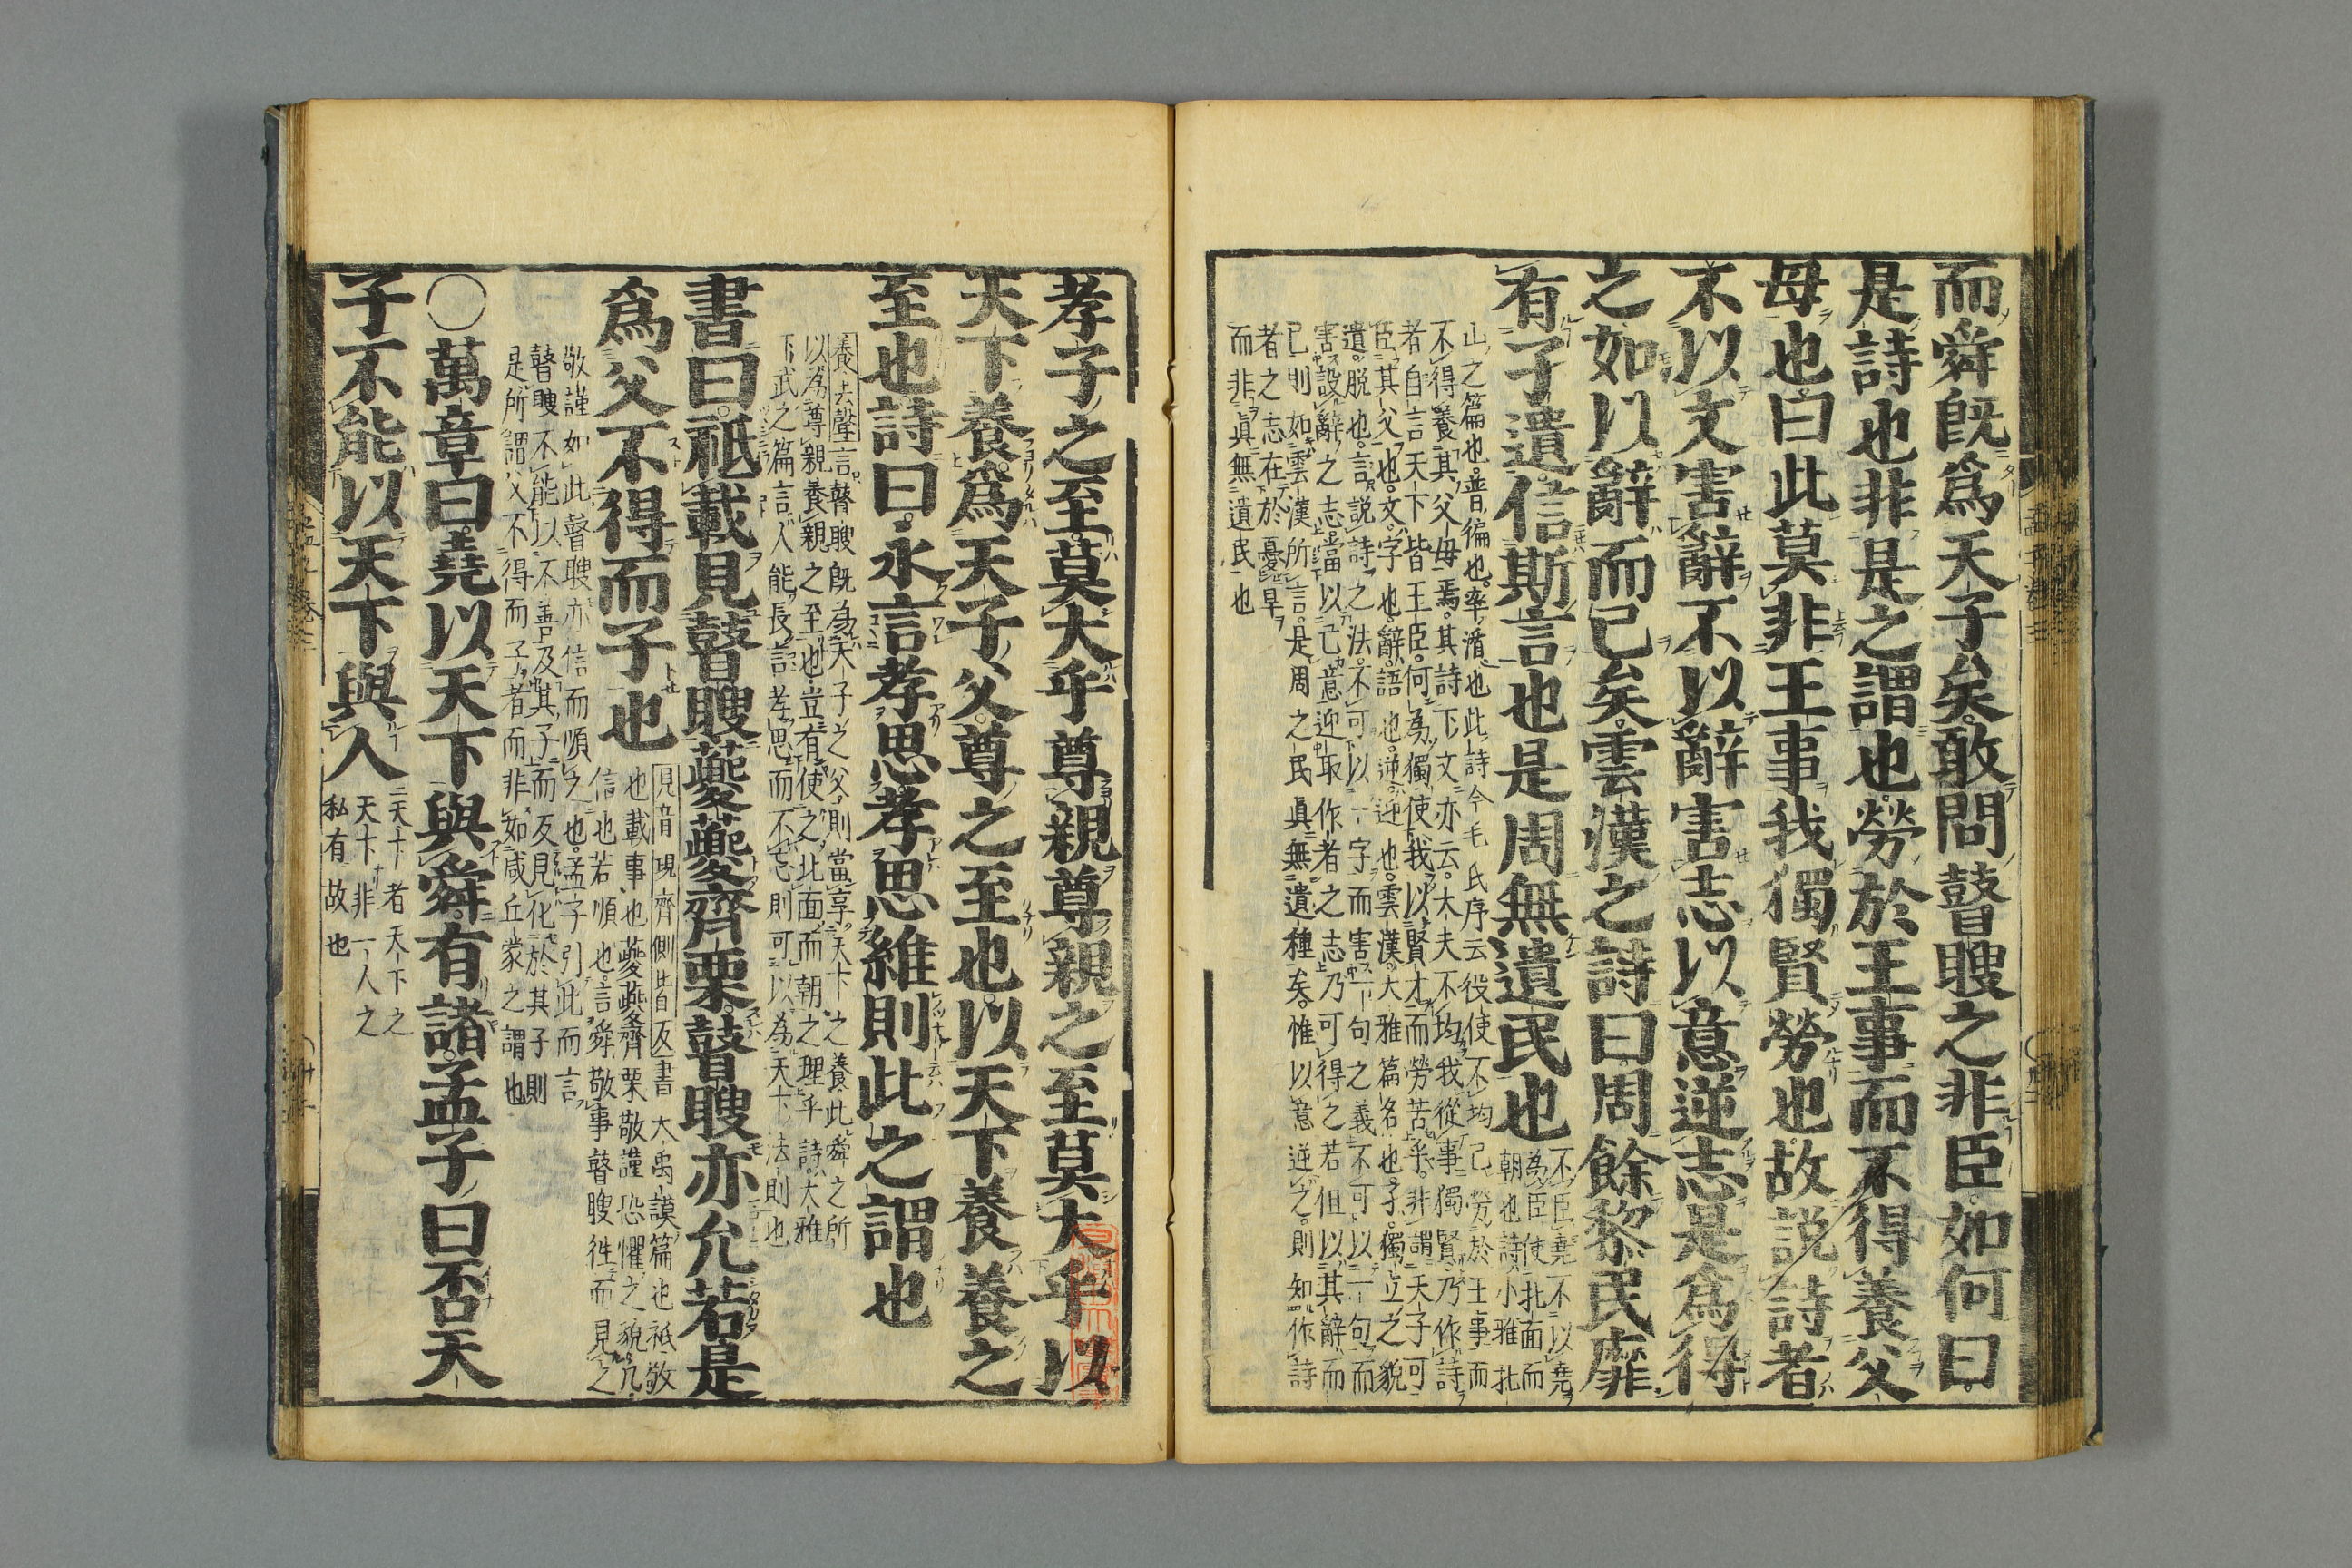 而舜旣爲天子矣敢問瞽瞍之非臣如何曰
是詩也非是之謂也勞於王事而不得養父
母也曰此莫非王事我獨賢勞也故説詩者
不以文害辭不以辭害志以意逆志是爲得
之如以辭而已矣雲漢之詩曰周餘黎民靡
有孑遺信斯言也是周無遺民也
不臣堯不以堯
為臣使北面而
朝也詩小雅北
山之篇也普徧也率循也此詩今毛氏序云役使不均己勞於王事而
不得養其父母焉其詩下文亦云大夫不均我從事獨賢乃作詩
者自言天下皆王臣何為獨使我以賢才而勞苦乎非謂天子可
臣其父也文字也辭語也逆迎也雲漢大雅篇名也孑獨立之貌
遺脱也言説詩之法不可以一字而害一句之義不可以一句而
害設辭之志當以己意迎取作者之志乃可得之若但以其辭而
已則如雲漢所言是周之民眞無遺種矣惟以意逆之則知作詩
者之志在於憂旱
而非眞無遺民也
孝子之至莫大乎尊親尊親之至莫大乎以
天下養爲天子父尊之至也以天下養養之
至也詩曰永言孝思孝思維則此之謂也
養去聲言瞽瞍旣為天子之父則當享天下之養此舜之所
以為尊親養親之至也豈有使之北面而朝之理乎詩大雅
下武之篇言人能長言孝思而不忘則可以為天下法則也
書曰祗載見瞽瞍夔夔齊栗瞽瞍亦允若是
爲父不得而子也
見音現齊側皆反書大禹謨篇也祗敬
也載事也夔夔齊栗敬謹恐懼之貌允
信也若順也言舜敬事瞽瞍徃而見之
敬謹如此瞽瞍亦信而順之也孟子引此而言
瞽瞍不能以不善及其子而反見化於其子則
是所謂父不得而子者而非如咸丘蒙之謂也
〇萬章曰堯以天下與舜有諸孟子曰否天
子不能以天下與人
天下者天下之
天下非一人之
私有故也